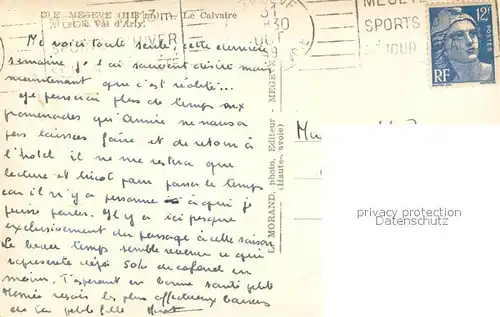 MEGEVE (1113 m). Le Calvaire
et le Val d'Arly.
Me voici toute seule, cette dernière
semaine je l'ai souvent désiré mais
maintenant que c'est réalité...
Je passerai plus de temps aux
promenades que Annie ne nous a
pas laissées faire et de retour à
l'hôtel il ne me restera que
lecture et tricot pour passer le temps
car il n'y a personne à qui je
puisse parler. Il y a ici presque
exclusivement du passage à cette saison
Le beau temps semble revenu ce qui
représente déjà 50% de cafard en
moins. T'espérant en bonne santé petite
Mémée reçois les plus affectueux baisers
de ta petite fille
L. MORAND, photo, Editeur - MEGEVE
(Haute-Savoie)
HIVER
MEGEVE
SPORTS
SEJOUR
12F
POSTES
RF
privacy protection